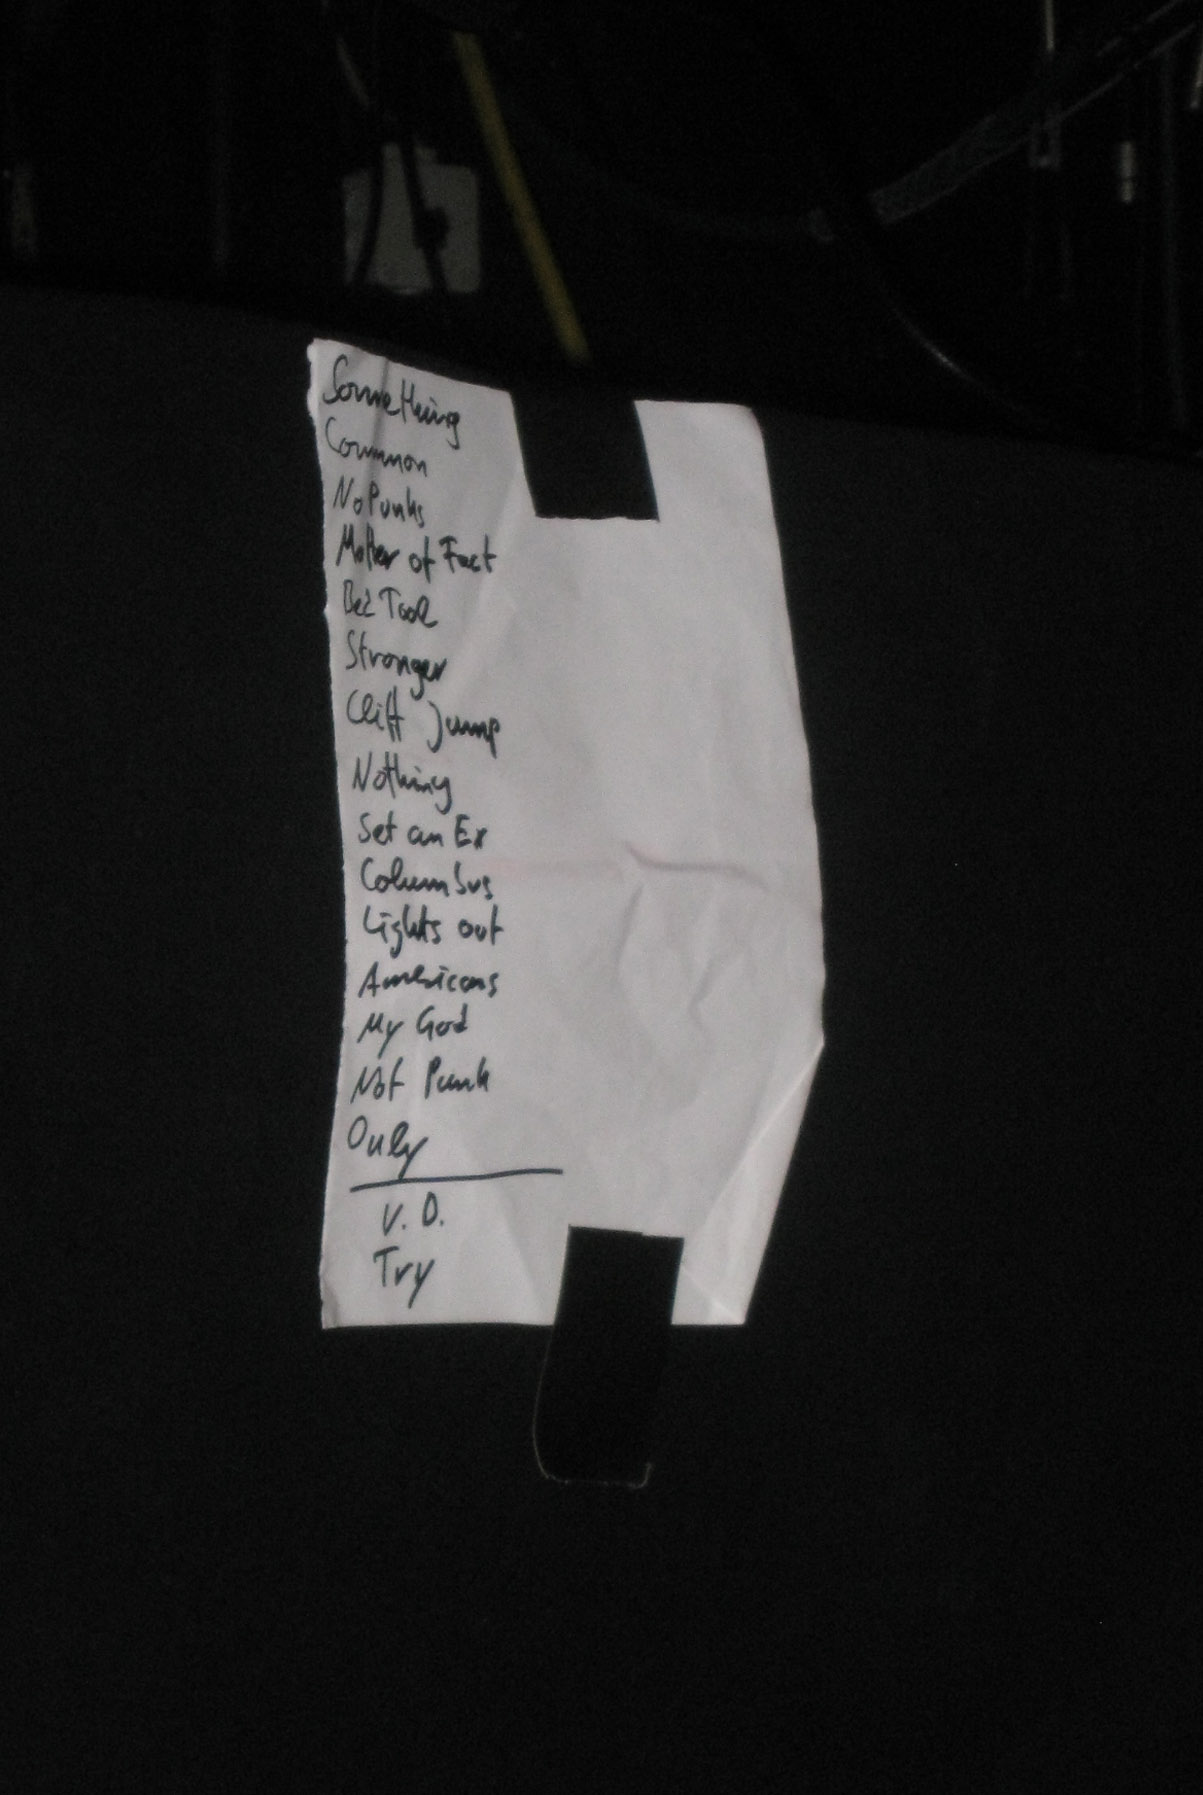 Something
Common
No Punks
Matter of Fact
Stronger
Cliff Jump
Nothing
Set an Ex
Columbus
Lights out
Americans
My God
Not Punk
Only
V. D.
Try